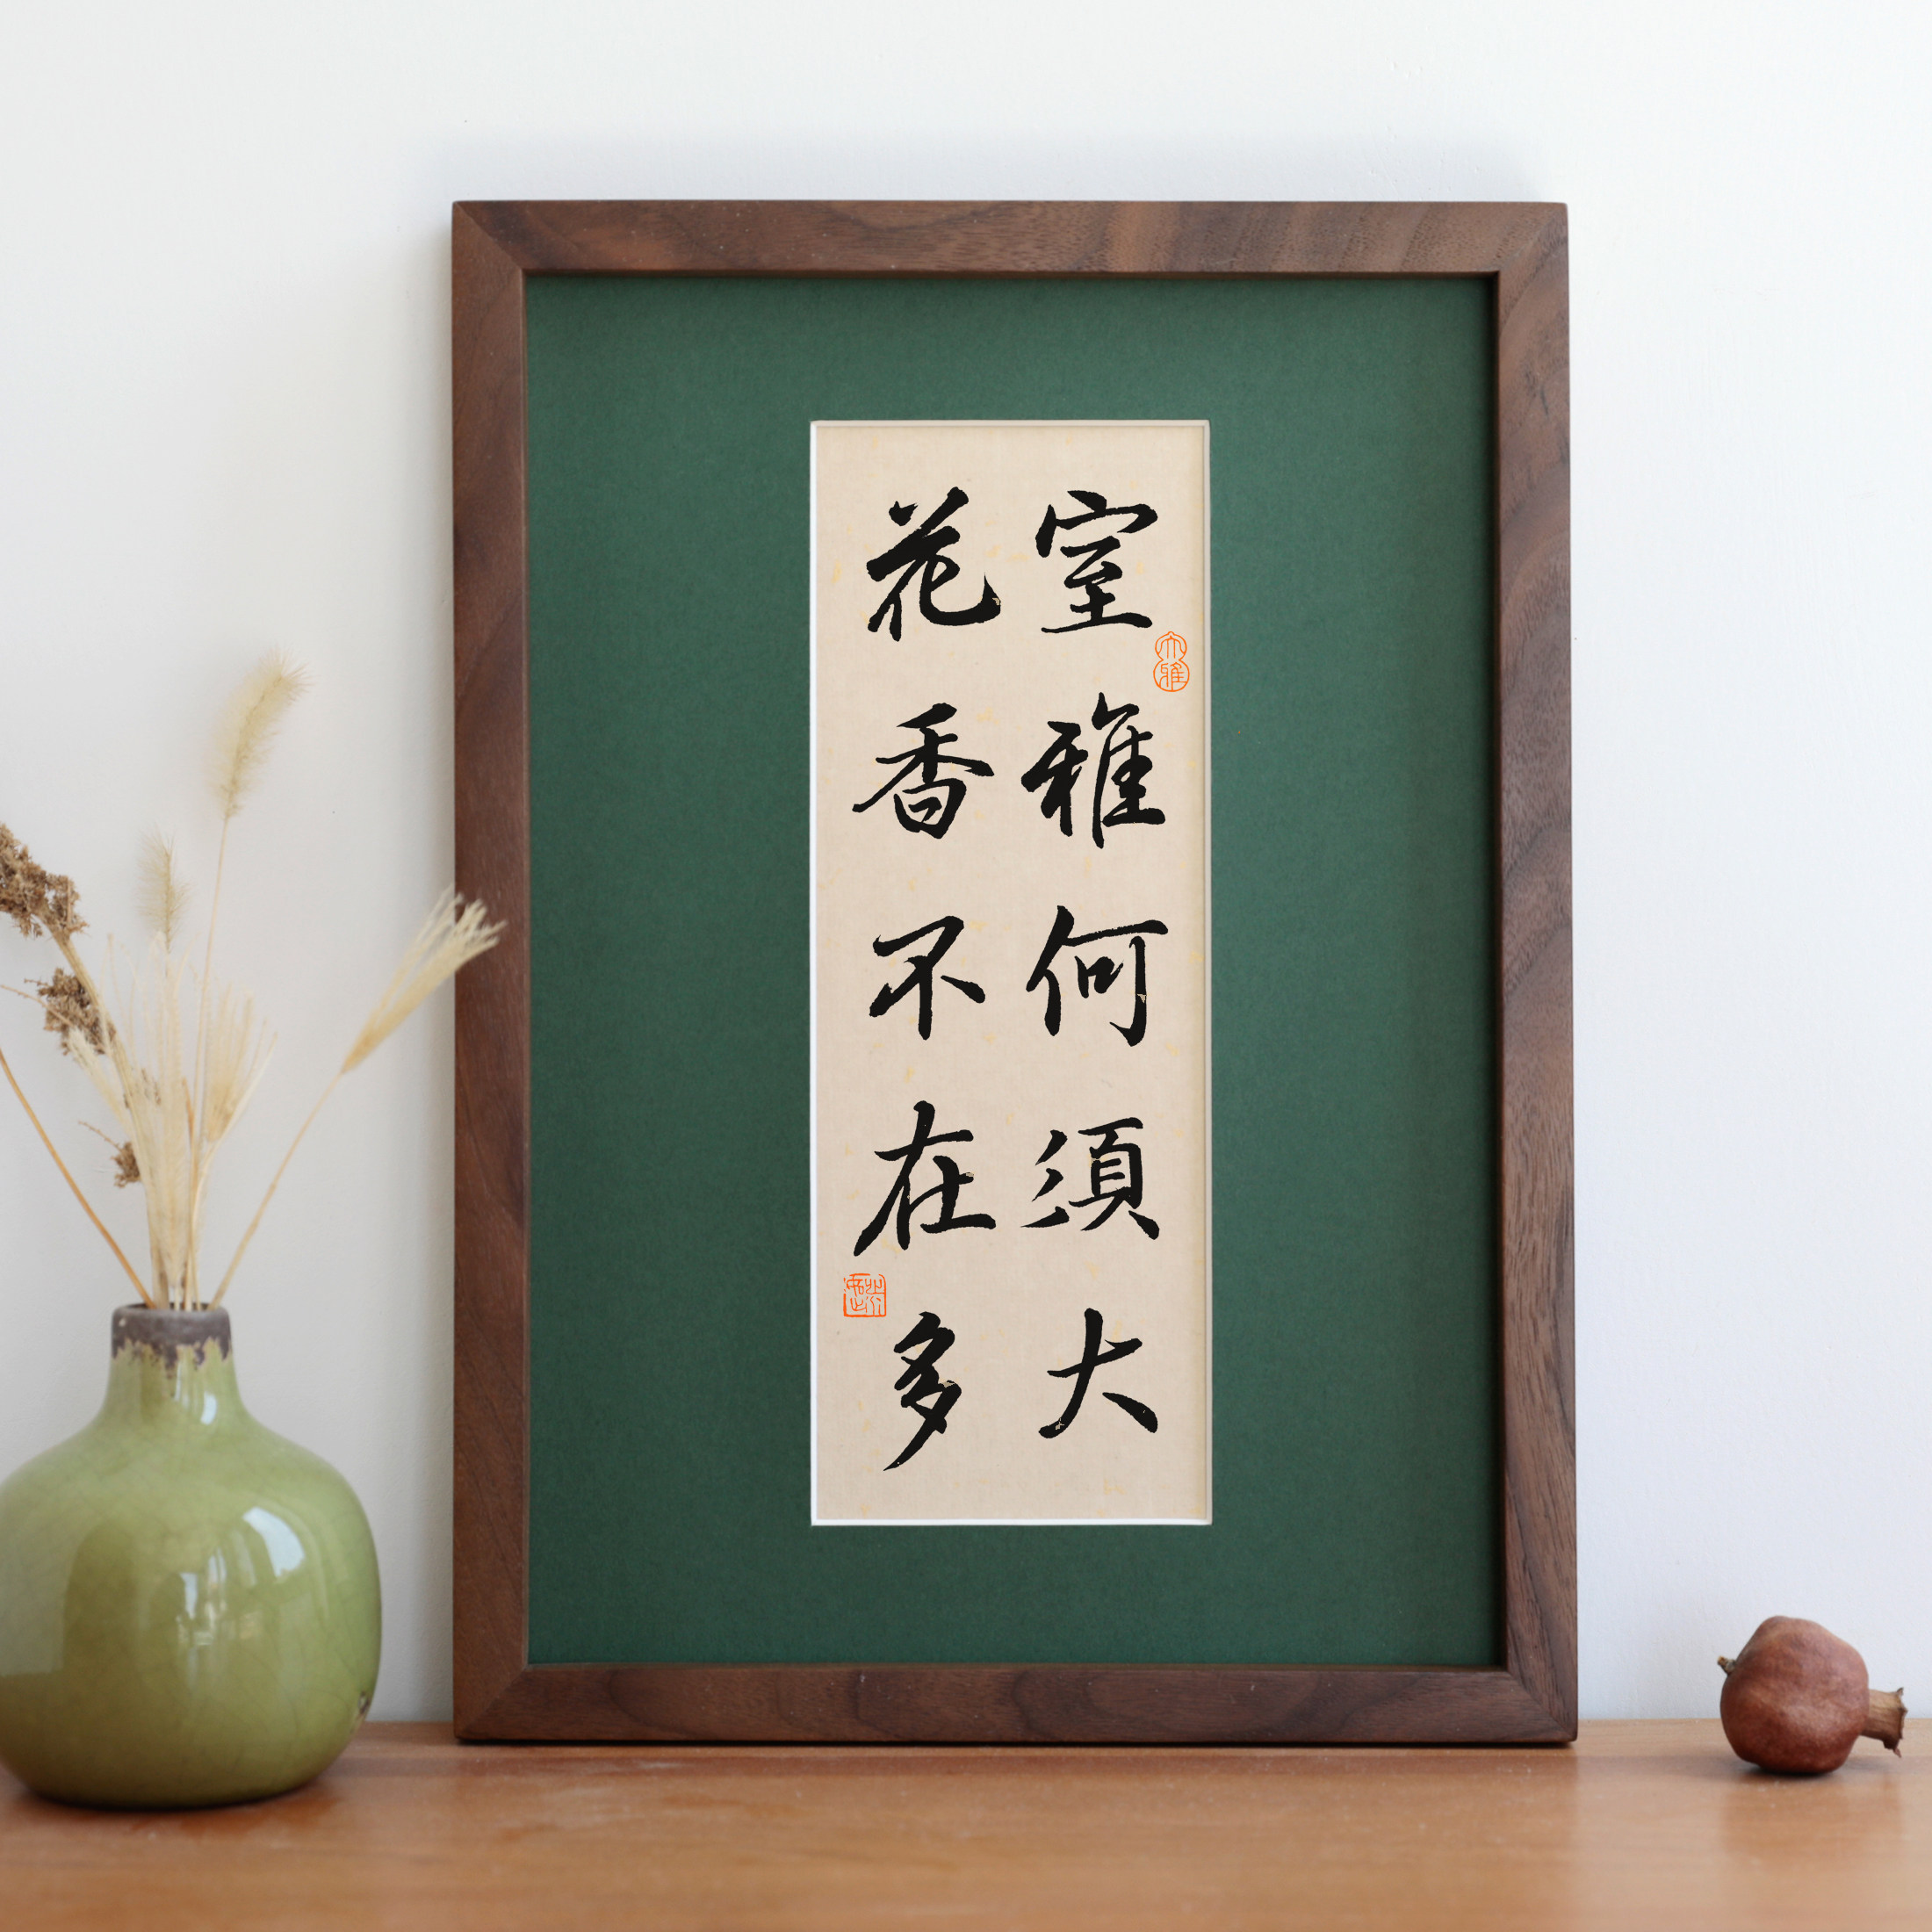 室雅何須大
花香不在多
大雅